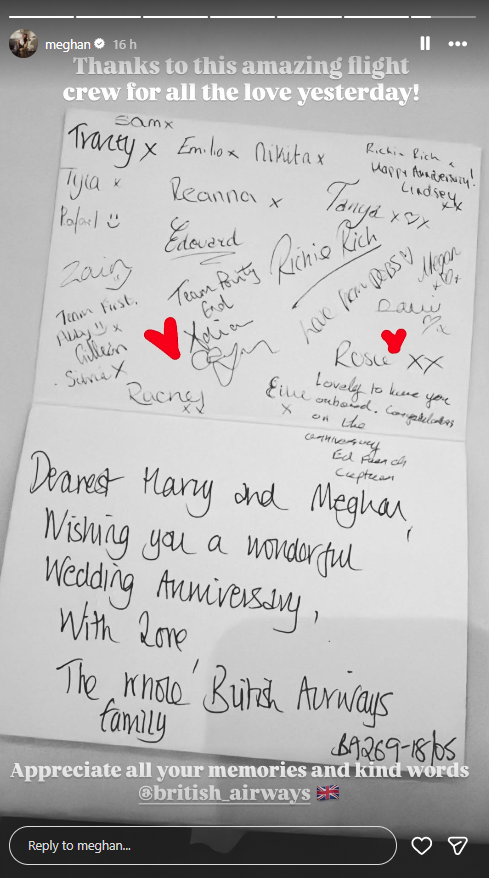 meghan 16 h
Thanks to this amazing flight
crew for all the love yesterday!
Samx
Tracey x Emilio x Nikita x
Richie Rich x
Happy Anniversary!
Lindsey
xx
Tyla x
Reanna x
Tanya x♡x
Rafael ☺
Edouard
Richie Rich
Megan
Zain
Team Pointy
End
Love from
Team First,
Abby ☺ x
Gillean
Silvia X
Rosie XX
Rachel
xx
x
Lovely to have you
onboard. Congratulations
on the
anniversary
Ed French
Captain
Dearest Harry and Meghan,
Wishing you a wonderful
Wedding Anniversary,
With Love
The whole British Airways
family
BA269-18/05
Appreciate all your memories and kind words
@british_airways 🇬🇧
Reply to meghan...